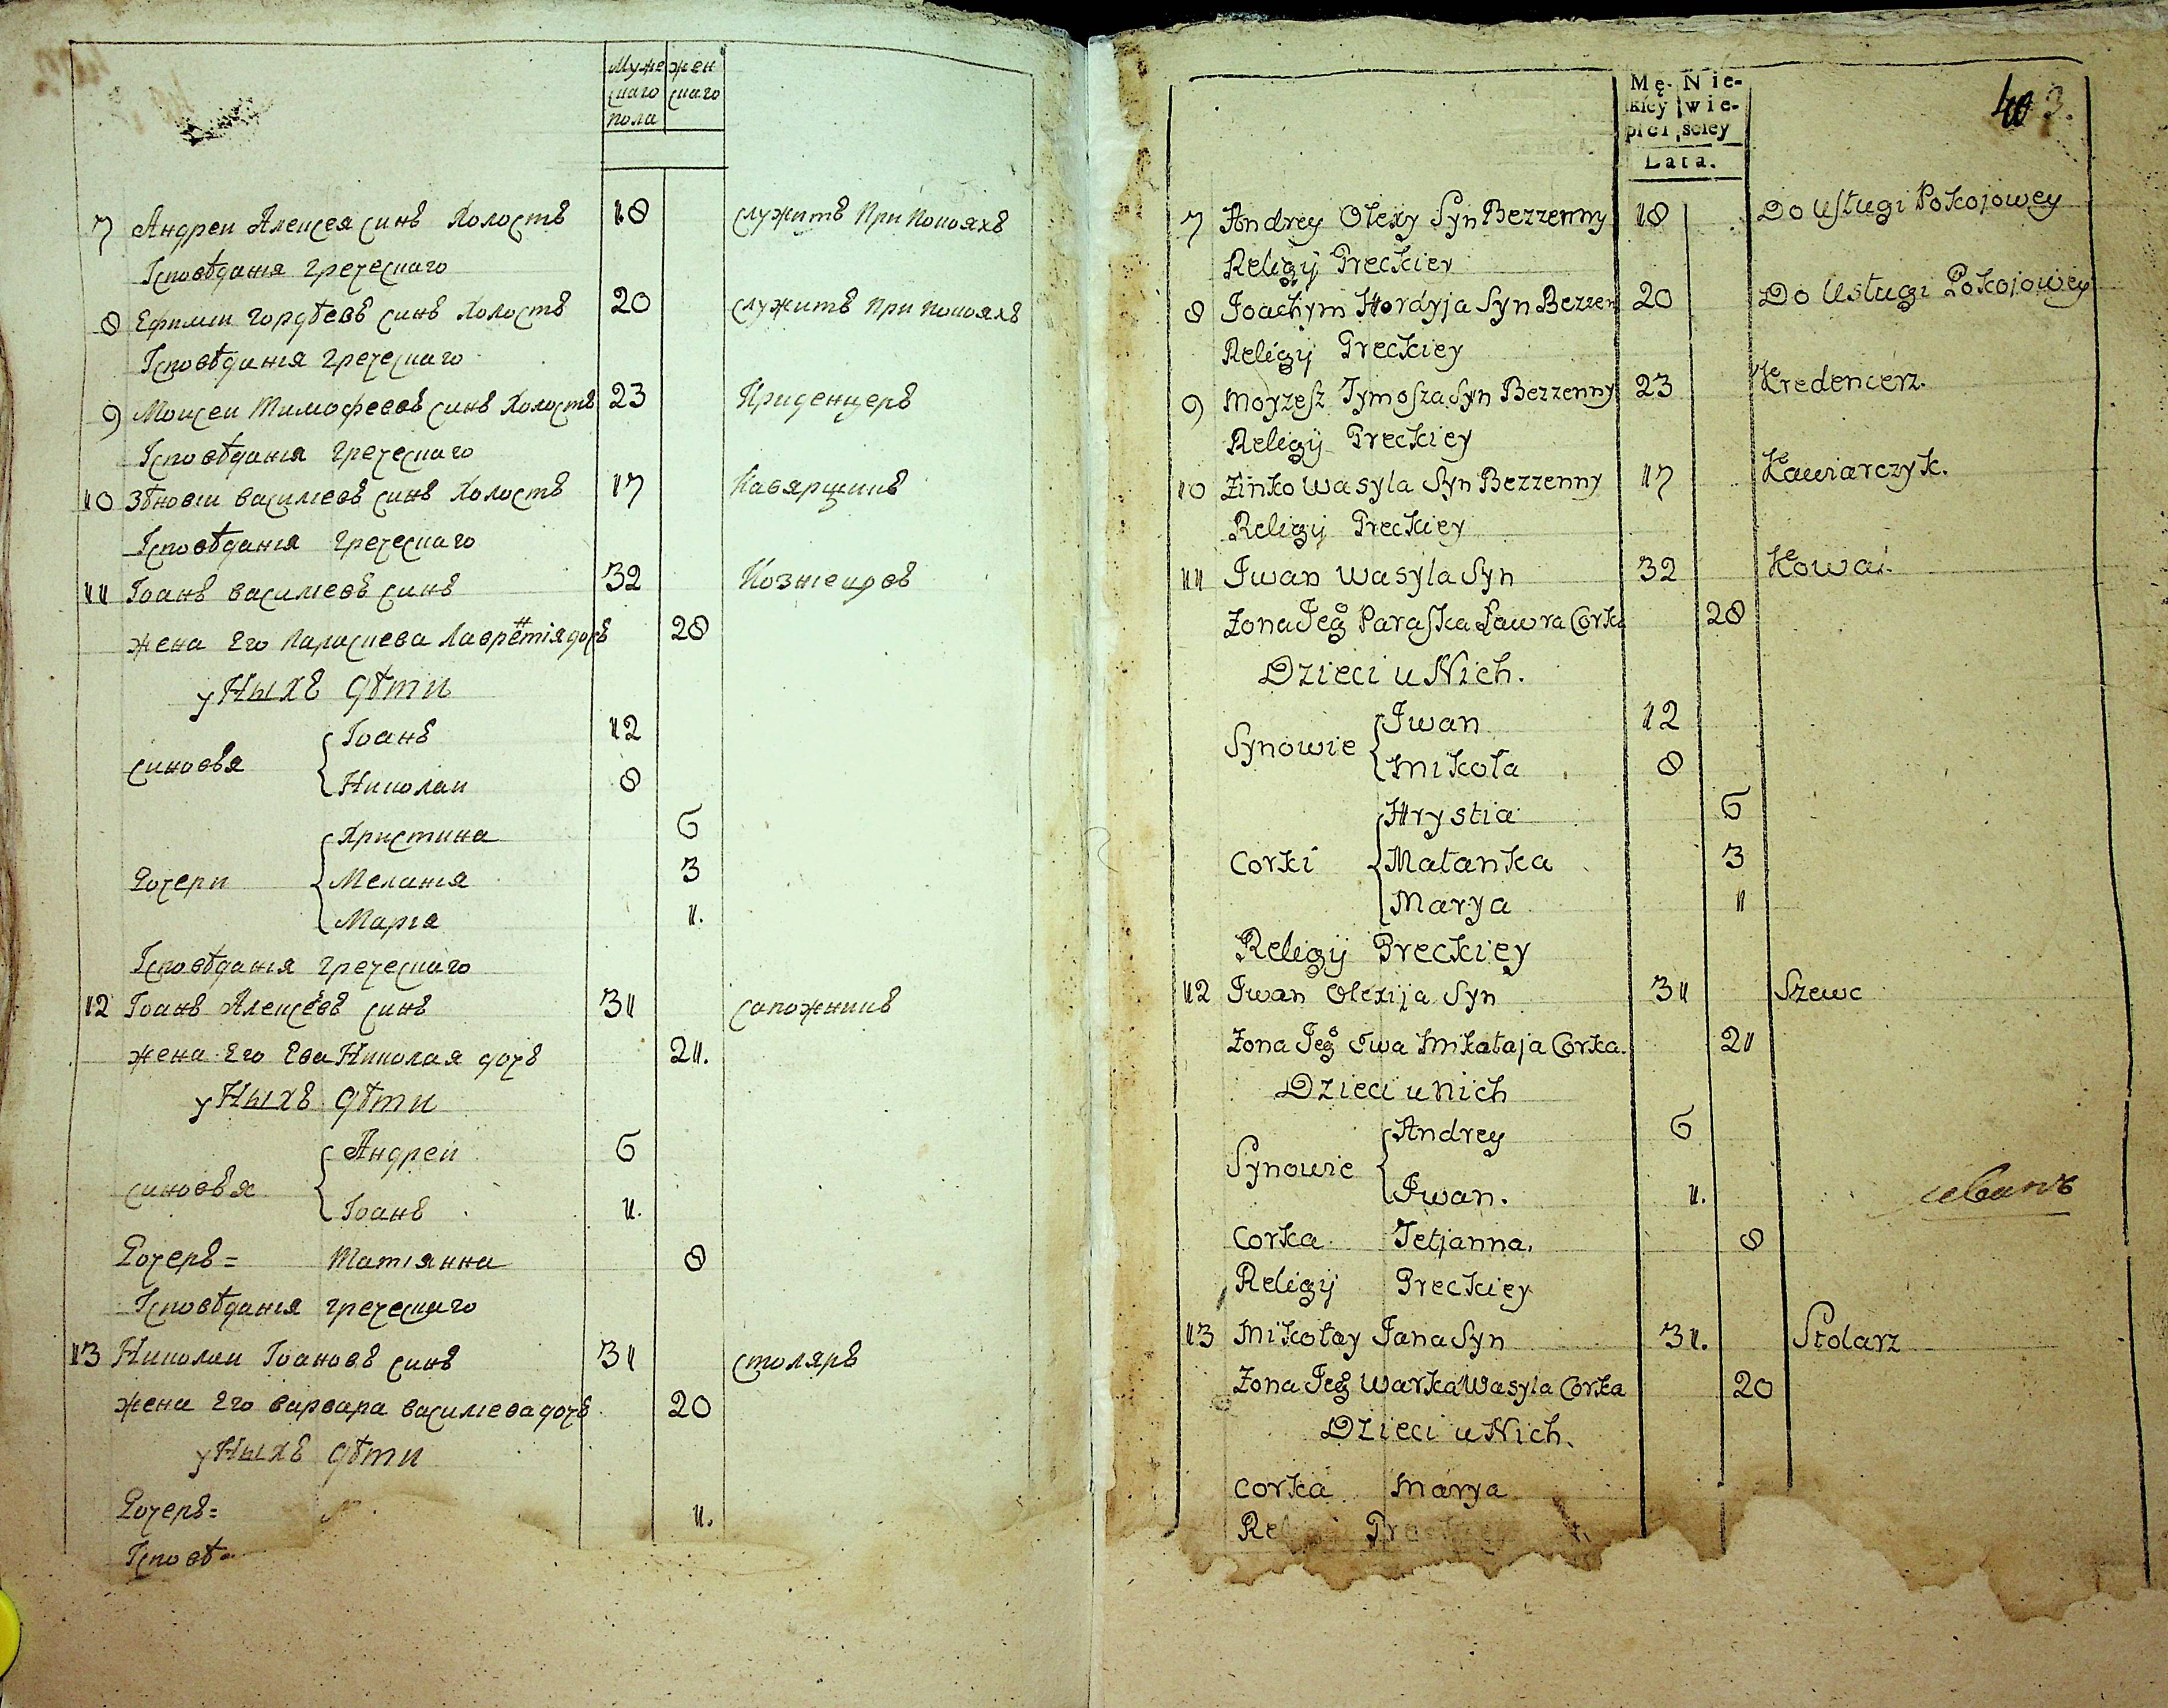 Муже жен
скаго скаго
пола
7 Андреи Алексея синъ Холостъ 18 служитъ При Покояхъ
Ісповѣданія греческаго
8 Ефимии Гордѣевъ синъ Холостъ 20 служитъ при покояхъ
Ісповѣданія греческаго
9 Моисеи Тимофеевъ синъ Холостъ 23 Криденцеръ
Ісповѣданія греческаго
10 Зѣновии василиевъ синъ Холостъ 17 Кавярщикъ
Ісповѣданія греческаго
11 Іоанъ василиевъ синъ 32
жена Его Параскева Лаврѣтія дочъ 28
у Ныхъ Дѣти
синовья Іоанъ 12
Николаи 8
Христина 6
Дочери Меланія 3
Марія 1.
Ісповѣданія греческаго
12 Іоанъ Алексѣевъ синъ 31 сапожникъ
жена Его Ева Николая дочъ 21.
у Ныхъ Дѣти
Андреи 6
синовья
Іоанъ 1.
Дочеръ= Татіянна 8
Ісповѣданія греческаго
13 Николаи Іоановъ синъ 31 столяръ
жена Его варвара василиева дочъ 20
у Ныхъ Дѣти
Дочеръ= 1.
Ісповѣ
Mę- Nie-
kicy wie-
płci sciey
Lata.
403.
7 Andrey Olexy Syn Bezzenny 18 Do Usługi Pokojowey
Religij Greckiey
8 Joachym Hordyja Syn Bezzen 20 Do Usługi Pokojowey
Religij Greckiey
9 Moyzesz Tymosza Syn Bezzenny 23 Kredencerz.
Religij Greckiey
10 Zinko Wasyla Syn Bezzenny 17 Kawiarczyk.
Religij Greckiey
11 Iwan Wasyla Syn 32 Kowal.
Zona Jeg̊ Paraska Ławra Corka 28
Dzieci u Nich.
Synowie Iwan 12
Mikoła 8
Hrystia 6
Corki Małanka 3
Marya 1
Religij Greckiey
12 Iwan Olexija Syn 31 Szewc
Zona Jeg̊ Iwa Mikałaja Corka. 21
Dzieci u nich
Andrey 6
Synowie
Iwan. 1.
иванъ
Corka Tetjanna. 8
Religij Greckiey
13 Mikołay Jana Syn 31. Stolarz
Zona Jeg̊ Warka Wasyla Corka 20
Dzieci u Nich.
Corka Marya
Religij Greckiey